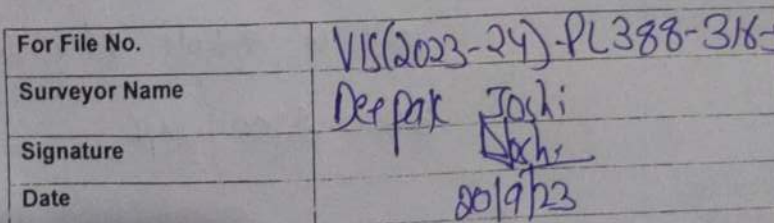 For File No. VIS(2023-24)-PL388-316-
Surveyor Name Deepak Joshi
Signature DJoshi
Date 20/9/23